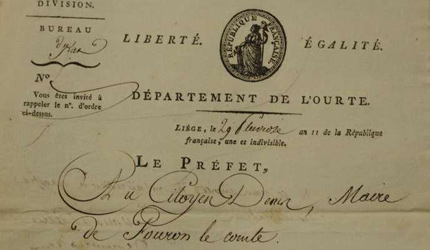 DIVISION.
BUREAU
LIBERTÉ.
RÉPUBLIQUE FRANÇAISE.
ÉGALITÉ.
N.º
Vous êtes invité à
rappeler le n.º d'ordre
ci-dessus.
DÉPARTEMENT DE L'OURTE.
LIÉGE, le 29 an 11 de la République
française, une et indivisible.
LE PRÉFET,
Au Citoyen Maire
de Fouron le comte.